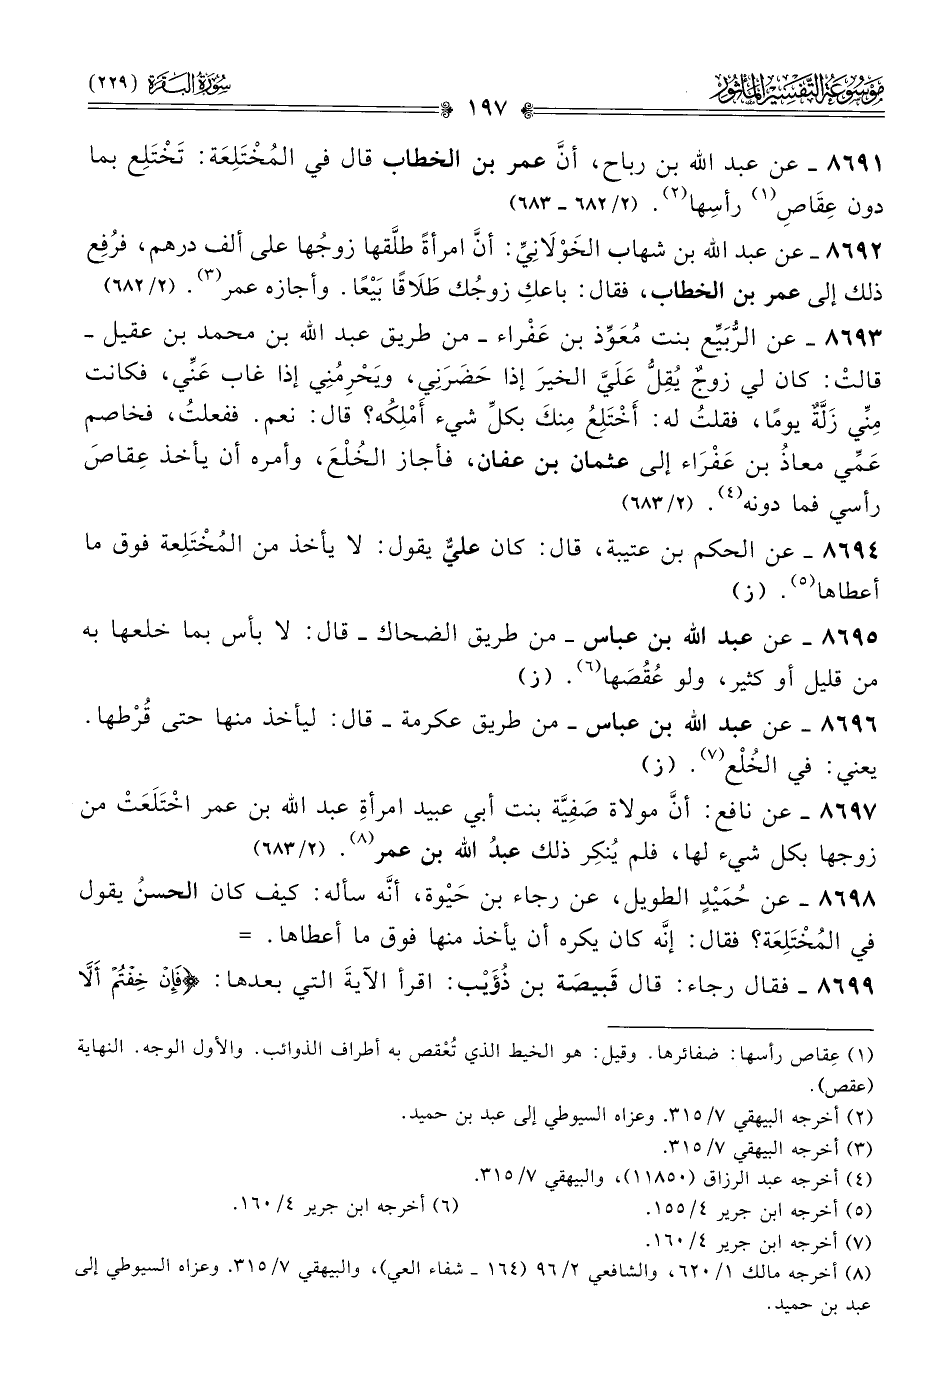 مَوْسُوعَة التَّفْسِير المَأْثُور
سُورَة البَقَرَة (٢٢٩)
١٩٧
٨٦٩١ ـ عن عبد الله بن رباح، أنَّ عمر بن الخطاب قال في المُخْتَلِعَة: تَخْتَلِع بما
دون عِقَاصِ(١) رأسِها(٢). (٢/ ٦٨٢ ـ ٦٨٣)
٨٦٩٢ ـ عن عبد الله بن شهاب الخَوْلَانِيِّ: أنَّ امرأةً طلَّقها زوجُها على ألف درهم، فرُفِع
ذلك إلى عمر بن الخطاب، فقال: باعكِ زوجُك طَلَاقًا بَيْعًا. وأجازه عمر(٣). (٢/ ٦٨٢)
٨٦٩٣ ـ عن الرُّبَيِّع بنت مُعَوِّذ بن عَفْراء ـ من طريق عبد الله بن محمد بن عقيل ـ
قالتْ: كان لي زوجٌ يُقِلُّ عَلَيَّ الخيرَ إذا حَضَرَنِي، ويَحْرِمُنِي إذا غاب عَنِّي، فكانت
مِنِّي زَلَّةٌ يومًا، فقلتُ له: أَخْتَلِعُ مِنكَ بكلِّ شيء أَمْلِكُه؟ قال: نعم. ففعلتُ، فخاصم
عَمِّي معاذُ بن عَفْرَاء إلى عثمان بن عفان، فأجاز الخُلْعَ، وأمره أن يأخذ عِقاصَ
رأسي فما دونه(٤). (٢/ ٦٨٣)
٨٦٩٤ ـ عن الحكم بن عتيبة، قال: كان عليٌّ يقول: لا يأخذ من المُخْتَلِعة فوق ما
أعطاها(٥). (ز)
٨٦٩٥ ـ عن عبد الله بن عباس ـ من طريق الضحاك ـ قال: لا بأس بما خلعها به
من قليل أو كثير، ولو عُقُصَها(٦). (ز)
٨٦٩٦ ـ عن عبد الله بن عباس ـ من طريق عكرمة ـ قال: ليأخذ منها حتى قُرْطها.
يعني: في الخُلْع(٧). (ز)
٨٦٩٧ ـ عن نافع: أنَّ مولاة صَفِيَّة بنت أبي عبيد امرأةِ عبد الله بن عمر اخْتَلَعَتْ من
زوجها بكل شيء لها، فلم يُنكِر ذلك عبدُ الله بن عمر(٨). (٢/ ٦٨٣)
٨٦٩٨ ـ عن حُمَيْدٍ الطويل، عن رجاء بن حَيْوة، أنَّه سأله: كيف كان الحسنُ يقول
في المُخْتَلِعَة؟ فقال: إنَّه كان يكره أن يأخذ منها فوق ما أعطاها. =
٨٦٩٩ ـ فقال رجاء: قال قَبِيصَة بن ذُؤَيْب: اقرأ الآيةَ التي بعدها: ﴿فَإِنْ خِفْتُمْ أَلَّا
(١) عِقاص رأسها: ضفائرها. وقيل: هو الخيط الذي تُعْقص به أطراف الذوائب. والأول الوجه. النهاية
(عقص).
(٢) أخرجه البيهقي ٧/ ٣١٥. وعزاه السيوطي إلى عبد بن حميد.
(٣) أخرجه البيهقي ٧/ ٣١٥.
(٤) أخرجه عبد الرزاق (١١٨٥٠)، والبيهقي ٧/ ٣١٥.
(٥) أخرجه ابن جرير ٤/ ١٥٥. (٦) أخرجه ابن جرير ٤/ ١٦٠.
(٧) أخرجه ابن جرير ٤/ ١٦٠.
(٨) أخرجه مالك ١/ ٦٢٠، والشافعي ٢/ ٩٦ (١٦٤ ـ شفاء العي)، والبيهقي ٧/ ٣١٥. وعزاه السيوطي إلى
عبد بن حميد.